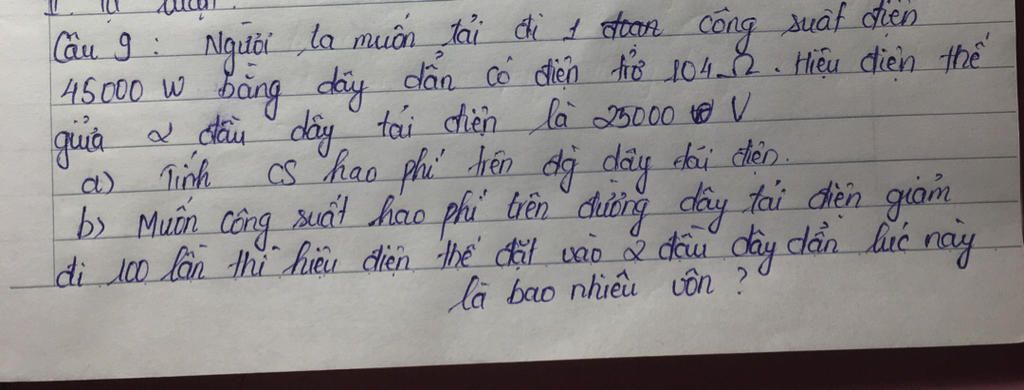 Câu 9 : Người ta muốn tải đi 1 công suất điện
45000 W bằng dây dẫn có điện trở 104 Ω. Hiệu điện thế
giữa 2 đầu dây tải điện là 25000 V
a) Tính CS hao phí trên đg dây tải điện.
b) Muốn công suất hao phí trên đường dây tải điện giảm
đi 100 lần thì hiệu điện thế đặt vào 2 đầu dây dẫn lúc này
là bao nhiêu vôn ?